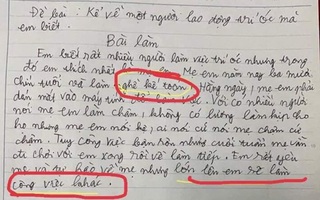 Đề bài: Kể về một người lao động trí óc mà
em biết.
Bài làm
Em biết rất nhiều người làm việc trí óc nhưng trong
đó em thích nhất là mẹ em. Mẹ em năm nay ba mươi
tuổi mẹ làm nghề kế toán. Hằng ngày, mẹ em phải
dán mắt vào máy tính để làm việc. Với có nhiều người
nói mẹ em làm chậm, không có lương làm kịp cho
họ nhưng mẹ em nói kệ, ai nói cứ nói mẹ chậm cứ
chậm. Tuy công việc bận rộn nhưng cuối tuần mẹ vẫn
đi chơi với em xong rồi về làm tiếp. Em rất yêu
mẹ và tự hào về mẹ nhưng lớn lên em sẽ làm
công việc khác.